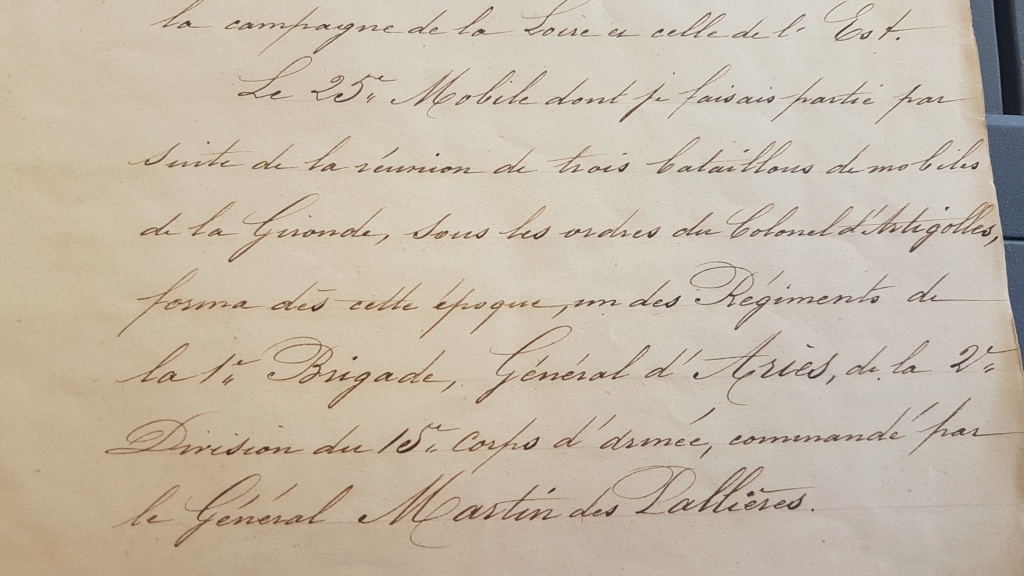 la campagne de la Loire et celle de l' Est.
Le 25e. Mobile dont je faisais partie par
suite de la réunion de trois bataillons de mobiles
de la Gironde, sous les ordres du Colonel d'Artigolles,
forma dès cette époque, un des Régiments de
la 1re. Brigade, Général d' Ariès, de la 2e.
Division du 15e. corps d'armée, commandé par
le Général Martin des Pallières.